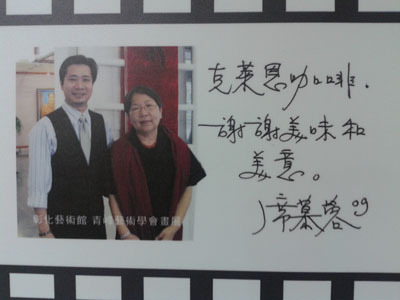 克萊恩咖啡.
謝謝美味和
美意。
席慕蓉 09
彰化藝術館 青峰藝術學會畫展